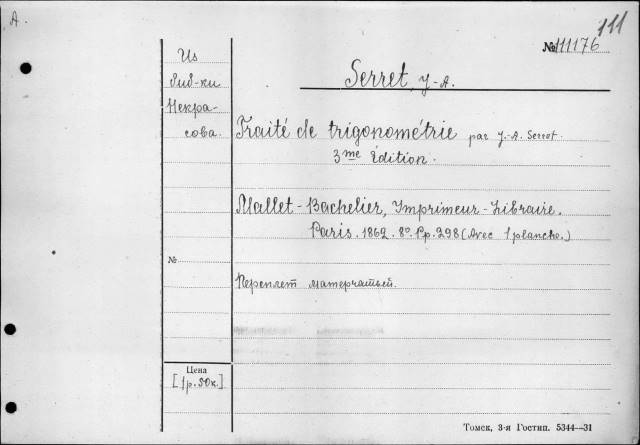 А.
111
№ 111176
Из
биб-ки
Некра-
сова.
Serret, J-A.
Traité de trigonométrie par J.-A. Serret.
3me Édition.
Mallet-Bachelier, Imprimeur-Libraire.
Paris. 1862. 8º. Pp. 298 (Avec 1 planche.)
№
Переплет матерчатый.
Цена
[1 р. 50 к.]
Томск, 3-я Гостип. 5344—31